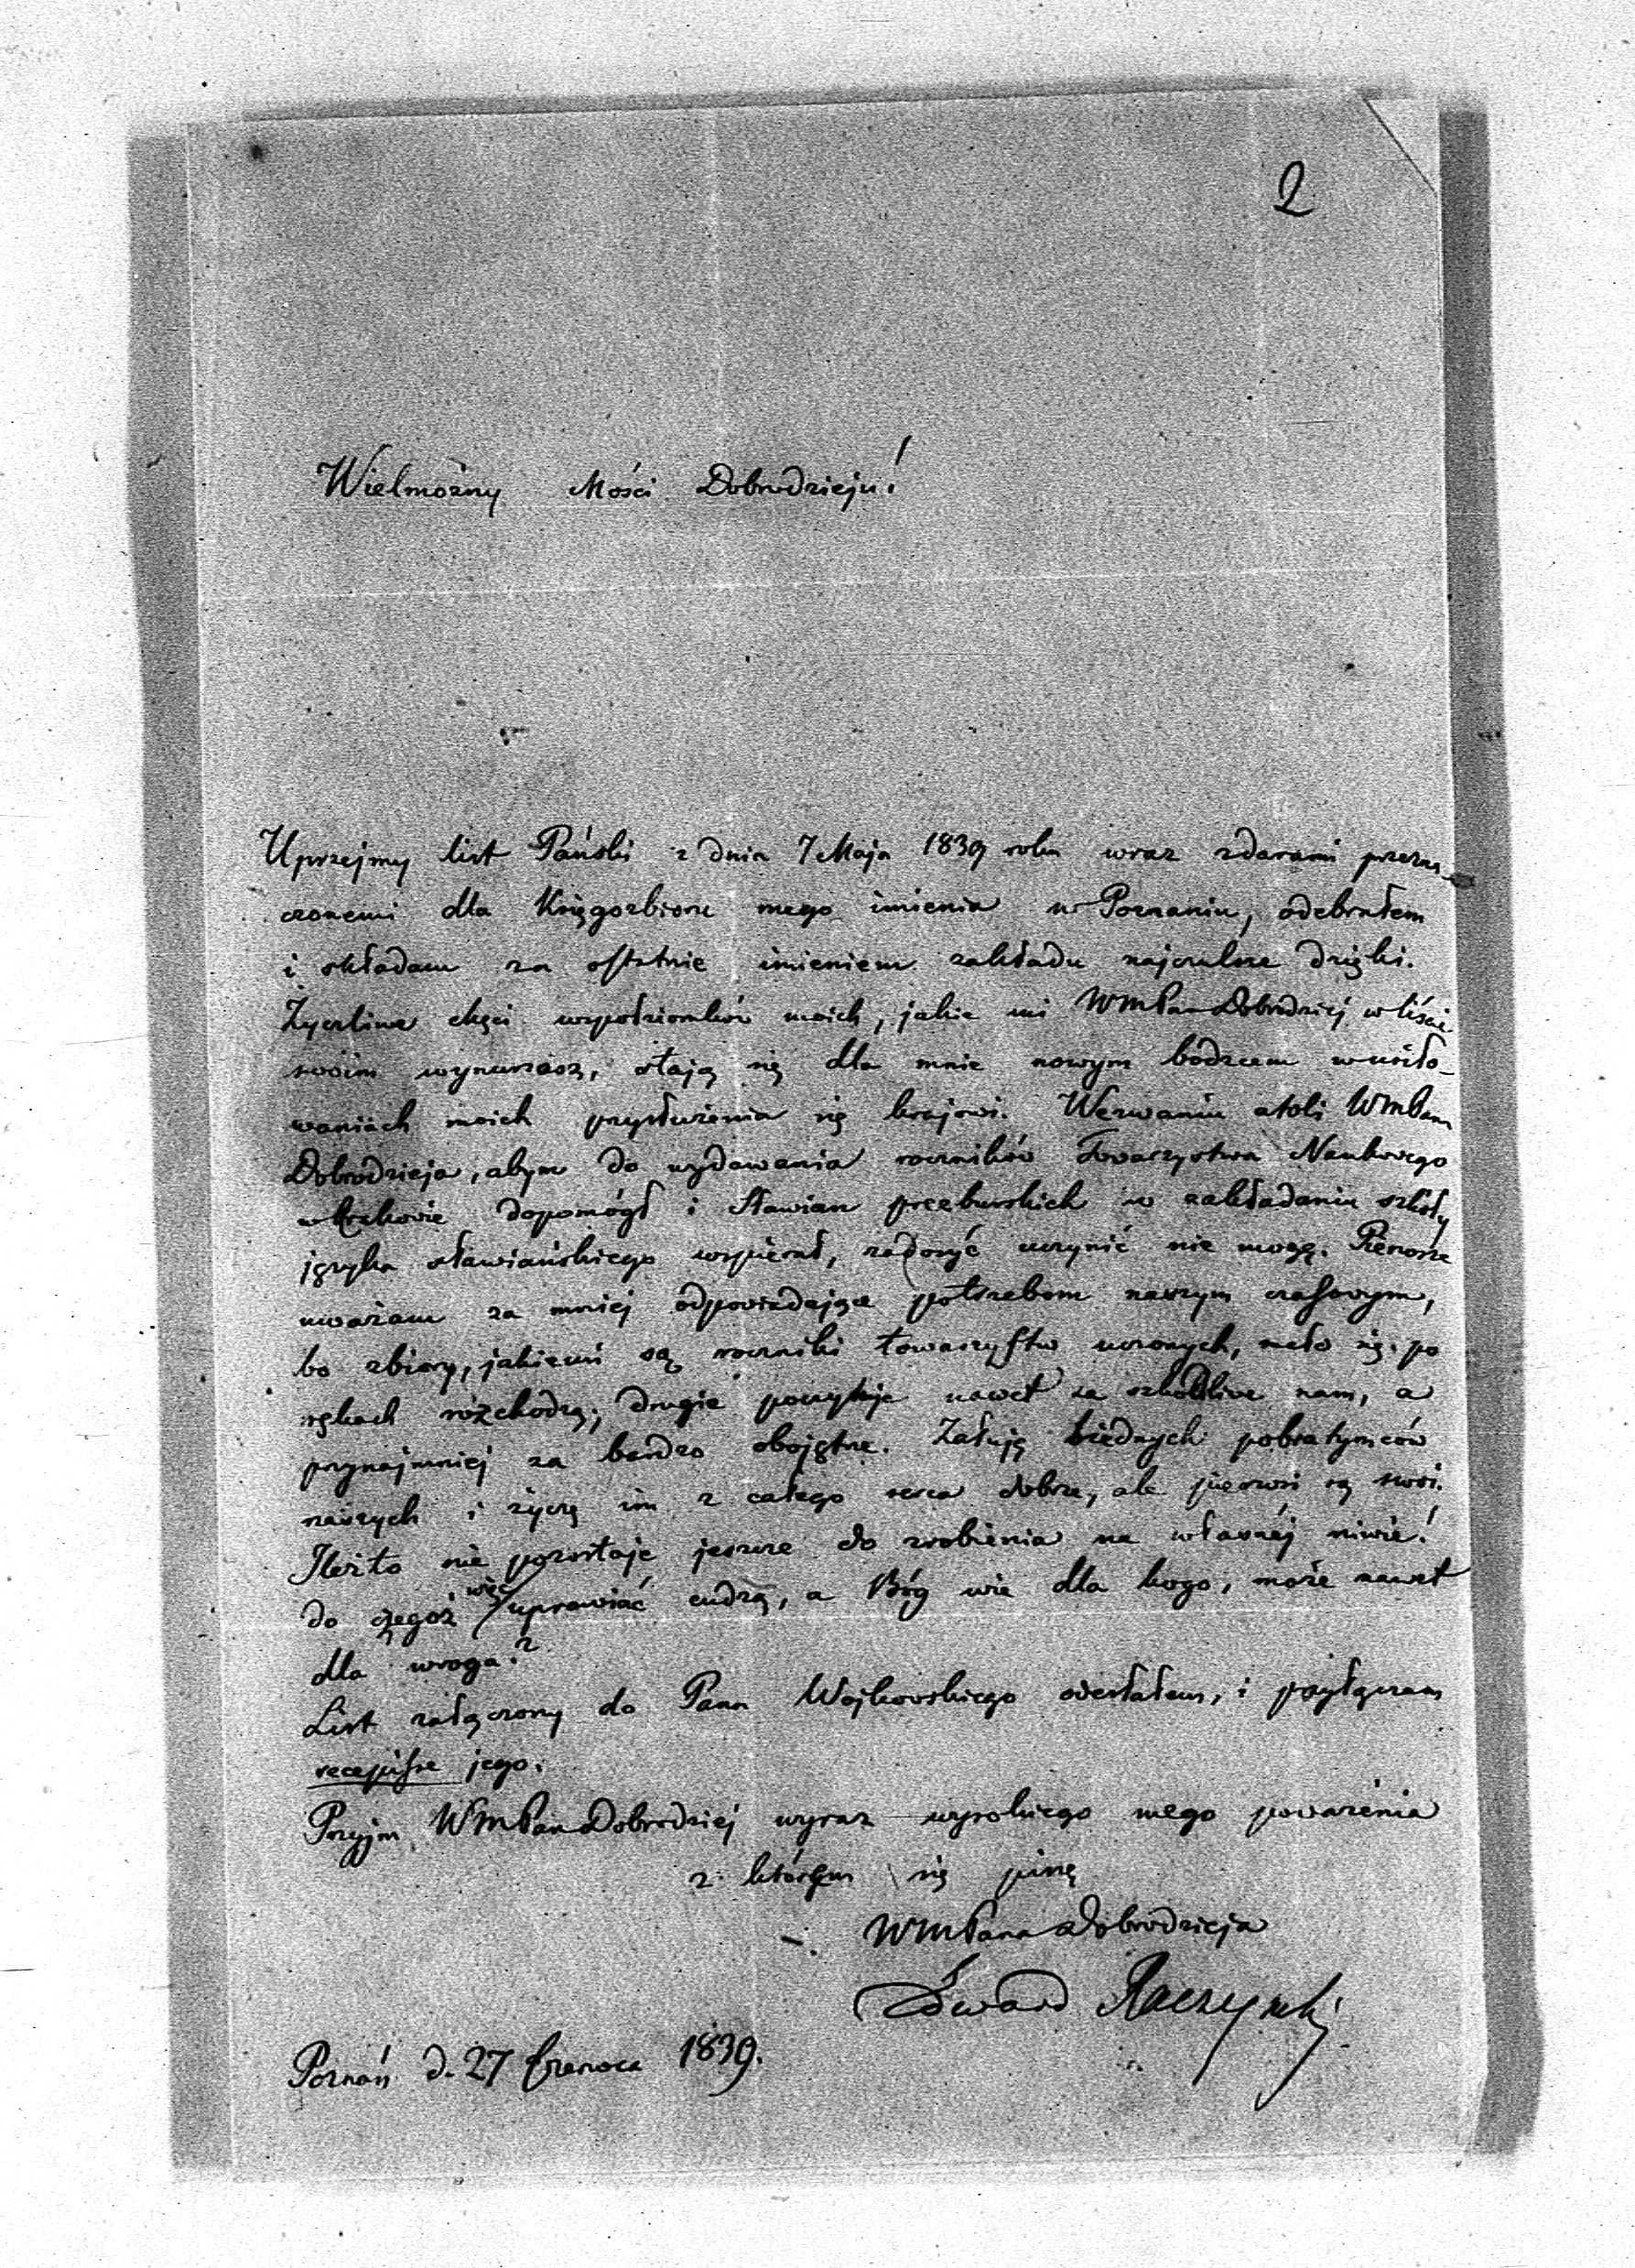 2
Wielmożny Mości Dobrodzieju!
Uprzejmy list Pański z dnia 7 Maja 1839 roku wraz z darami przezna-
czonemi dla Księgozbioru mego imienia w Poznaniu, odebrałem
i składam za ostatnie imieniem zakładu najczulsze dzięki.
Życzliwe chęci współziomków moich, jakie mi WMPan Dobrodziej w liście
swoim wynurzasz, stają się dla mnie nowym bodzcem w usiło-
waniach moich przysłużenia się krajowi. Wezwaniu atoli WMPana
Dobrodzieja, abym do wydawania roczników Towarzystwa Naukowego
w Krakowie dopomógł i Sławian preeburskich w zakładaniu szkoły
języka sławiańskiego wspierał, zadosyć uczynić nie mogę. Pierwsze
uważam za mniej odpowiadające potrzebom naszym czasowym,
bo zbiory, jakiemi są roczniki towarzystw uczonych, mało się po
rękach rozchodzą; drugie poczytuję nawet za szkodliwe nam, a
przynajmniej za bardzo obojętne. Żałuję biednych pobratymców
naszych i życzę im z całego serca dobrze, ale pierwsi są swoi.
Ileżto nie pozostaje jeszcze do zrobienia na własnéj niwie!
do czegoż więc uprawiać cudzą, a Bóg wie dla kogo, może nawet
dla wroga?
List załączony do Pana Wojkowskiego odesłałem, i przyłączam
recepisse jego.
Przyjm WMPan Dobrodziej wyraz wysokiego mego poważenia
z którém się piszę
WMPana Dobrodzieja
Edward Raczyński
Poznań d. 27 Czerwca 1839.